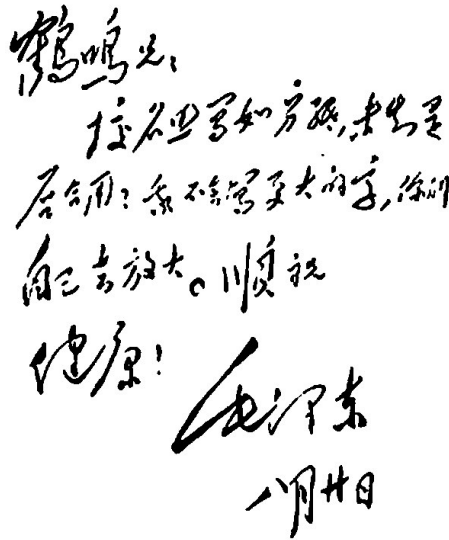 鹤鸣兄:
校名照写如另纸,未知是
否合用?我不会写更大的字,你们
自己去放大。顺祝
健康!
毛泽东
八月廿日